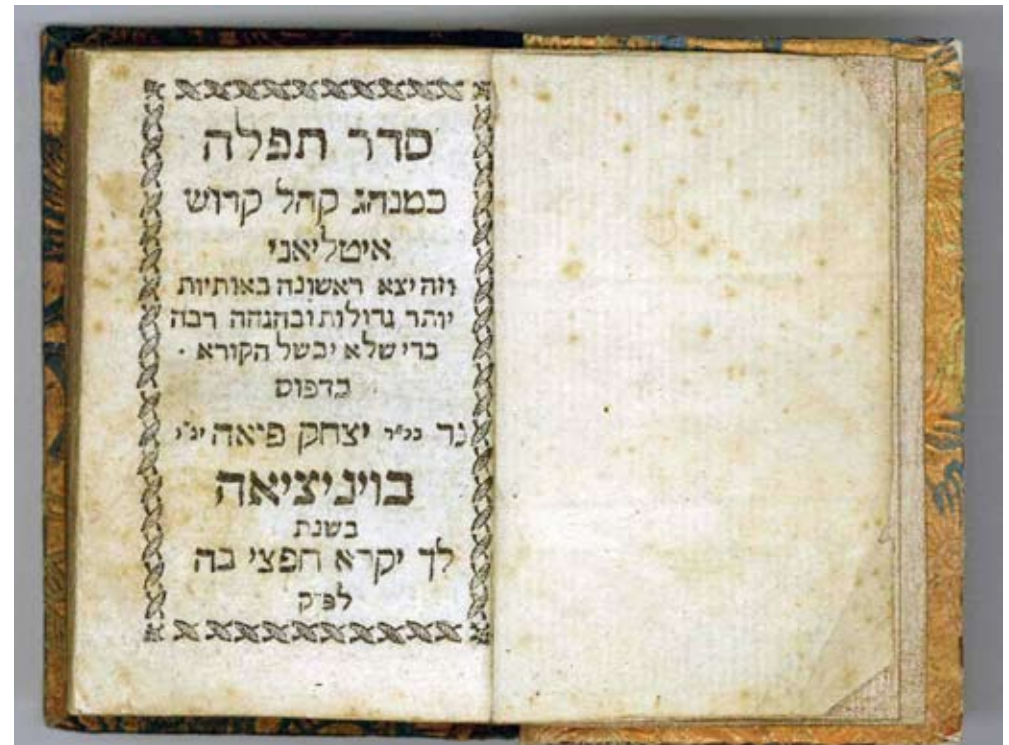 סדר תפלה
כמנהג קהל קדוש
איטליאני
וזה יצא ראשונה באותיות
יותר גדולות ובהגהה רבה
כדי שלא יכשל הקורא ·
בדפוס
גד בכ״ר יצחק פואה יצ״ו
בויניציאה
בשנת
לך יקרא חפצי בה
לפ״ק